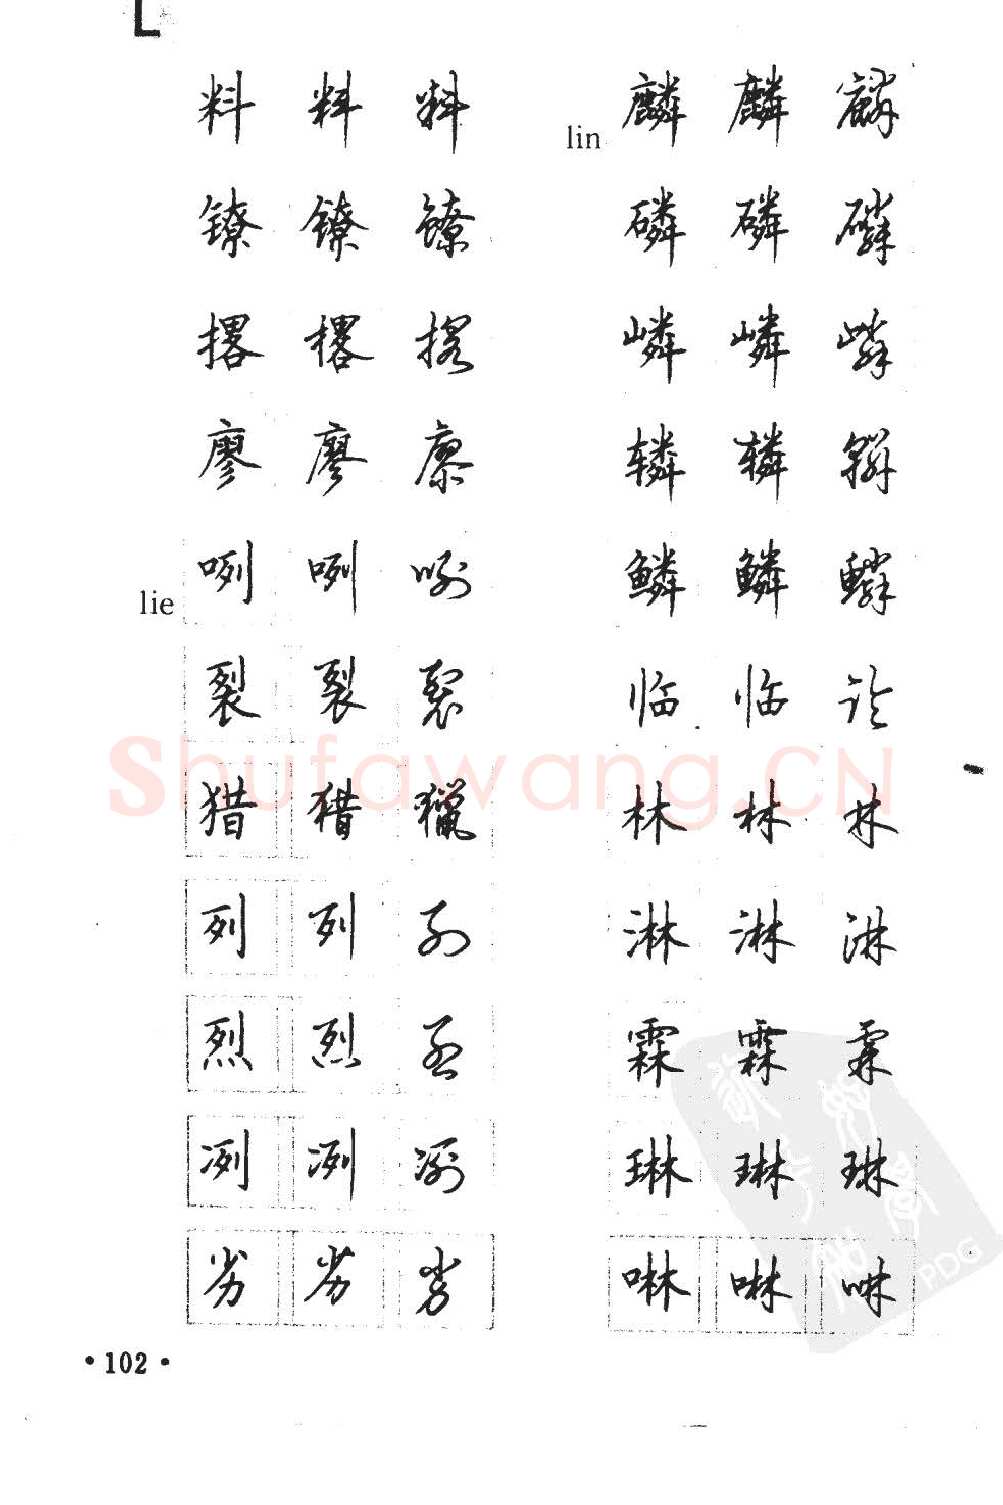 L
料 料 料
镣 镣 镣
撂 撂 撂
廖 廖 廖
lie 咧 咧 咧
裂 裂 裂
猎 猎 獵
列 列 列
烈 烈 烈
冽 冽 冽
劣 劣 劣
lin 麟 麟 麟
磷 磷 磷
嶙 嶙 嶙
辚 辚 辚
鳞 鳞 鳞
临 临 临
林 林 林
淋 淋 淋
霖 霖 霖
琳 琳 琳
啉 啉 啉
Shufawang.CN
PDG
·102·